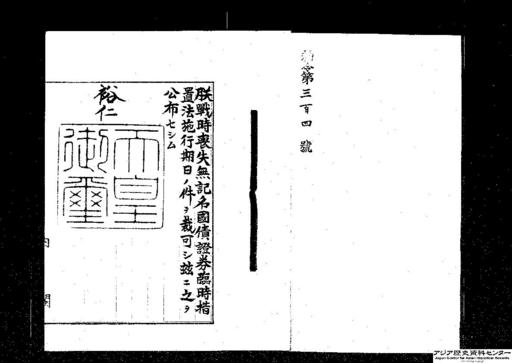 勅令第三百四號
朕戰時喪失無記名國債證券臨時措
置法施行期日ノ件ヲ裁可シ玆ニ之ヲ
公布セシム
裕仁
天皇
御璽
内閣
アジア歴史資料センター
Japan Center for Asian Historical Records